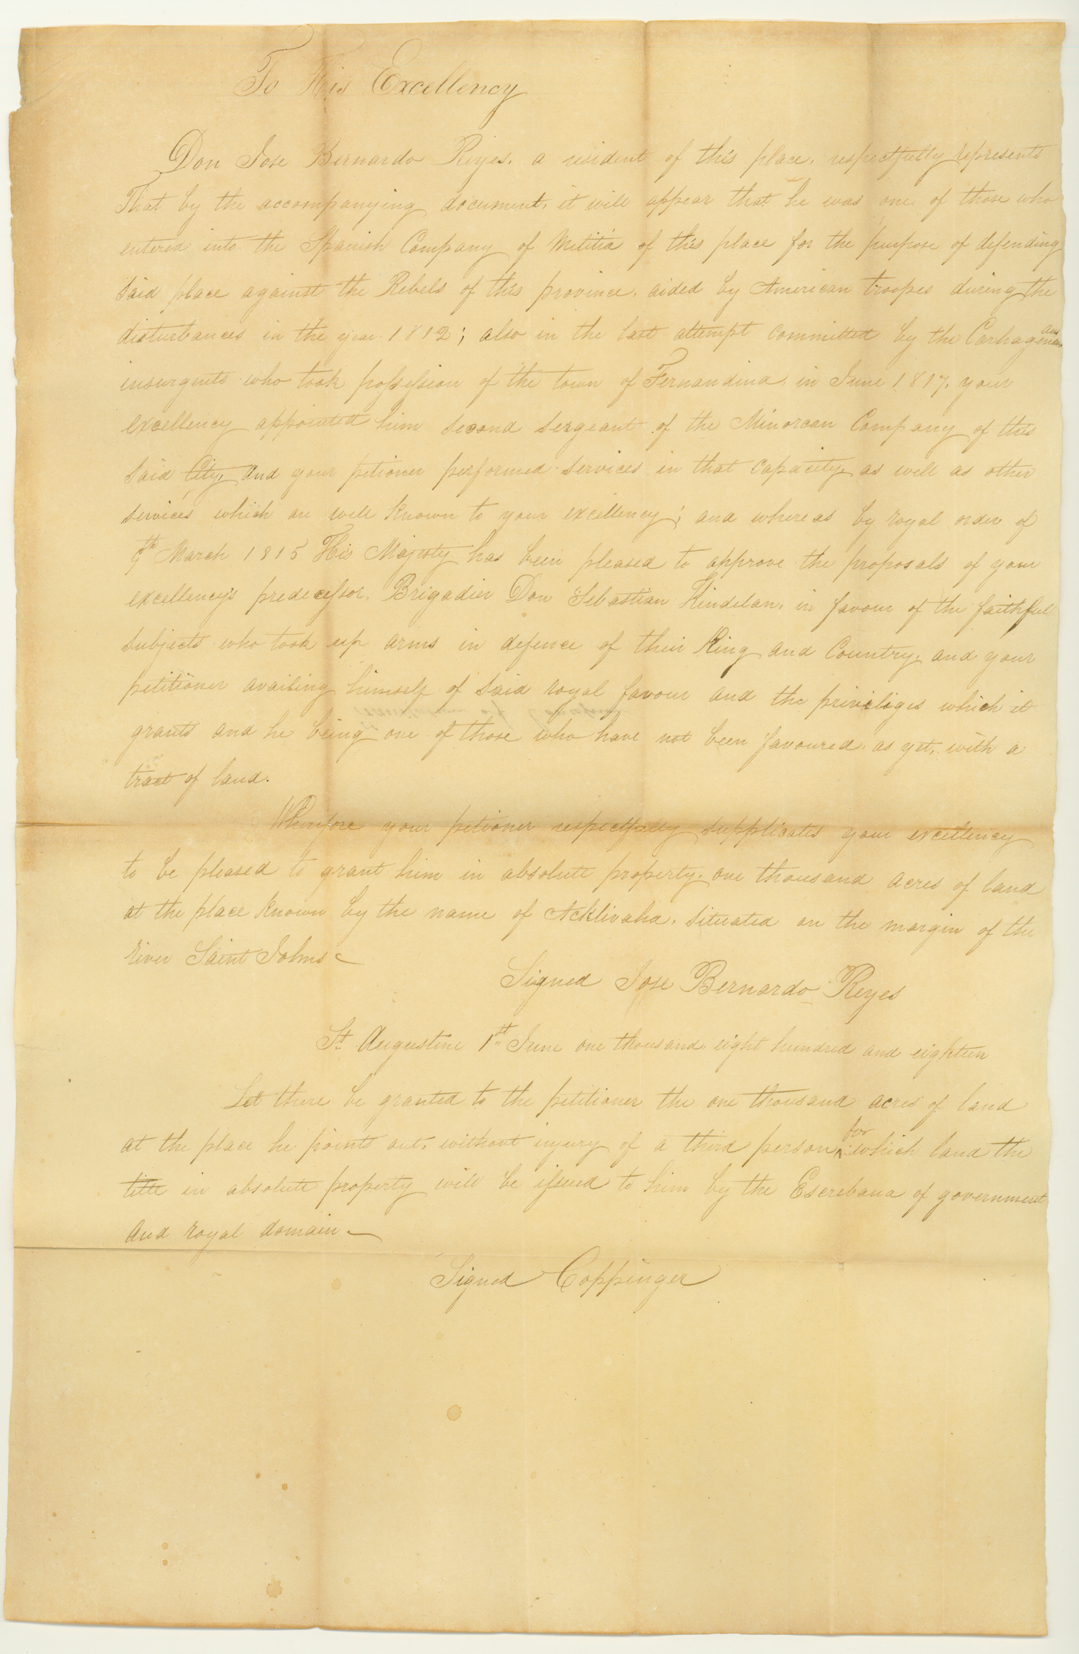 To His Excellency
Don Jose Bernardo Reyes, a resident of this place, respectfully represents
That by the accompanying document, it will appear that he was one of those who
entered into the Spanish Company of Militia of this place for the purpose of defending
said place against the Rebels of this province, aided by American troopes during the
disturbances in the year 1812; also in the last attempt committed by the
insurgents who took possession of the town of Fernandina, in June 1817, your
excellency appointed him second sergeant of the Minorcan Company of this
said City, and your petioner performed services in that capacity as well as other
services which are well known to your excellency; and whereas by royal order of
March 1815 His Majesty has been pleased to approve the proposals of your
excellency's predecessor, Brigadier Don Sebastian Kindelan, in favour of the faithful
subjects who took up arms in defence of their King and Country, and your
petitioner availing himself of said royal favour and the privileges which it
grants and he being one of those who have not been favoured, as yet, with a
tract of land.
Wherefore your petioner respectfully supplicates your excellency
to be pleased to grant him in absolute property, one thousand acres of land
at the place known by the name of Acklivaha, situated on the margin of the
river Saint Johns
Signed Jose Bernardo Reyes
St Augustine 1st June one thousand eight hundred and eighteen
Let there be granted to the petitioner the one thousand acres of land
at the place he points out, without injury of a third person, for which land the
title in absolute property will be issued to him by the Escribana of government
and royal domain
Signed Coppinger